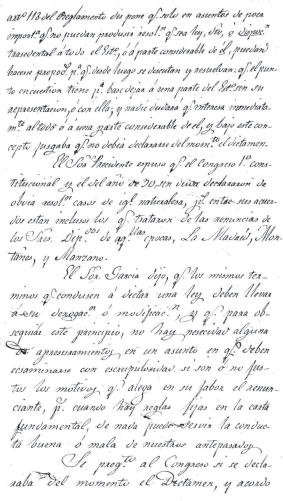 art.º 113 del Reglamento dispone q.e solo en asuntos de poca
import.a q.e no puedan producir resol.n q.e sea ley, dec.o
trascendental á todo el Est.o, ó á parte considerable de él, puedan
hacerse propos.s p.a q.e desde luego se discutan y resuelvan: q.e el pun
to en cuestion tiene p.r base dejar á una parte del Est.o sin su
representacion, ó con ella; y nadie dudará q.e interesa inmediata
m.te al todo ó á una parte considerable de él, y bajo este con
cepto juzgaba q.e no debia declararse del mom.to el dictamen.
El Sr. Presidente espuso q.e el Congreso 1.º cons
titucional y el del año de 30, sin duda declararon de
obvia resol.n casos de ig.l naturaleza, p.s entre sus acuer
dos estan incluso los q.e trataron de las renuncias de
los Sres. Dip.dos de aq.llas epocas, La Madrid, Mon
tañez, y Manzano.
El Sr. Garcia dijo, q.e los mismos ter
minos q.e conducen á dictar una ley deben llevar
á su derogac.n ó modificac.n y q.e para ob
sequiar este principio, no hay necesidad alguna
de apresuramiento en un asunto en q.e deben
ecsaminarse con escrupulosidad si son ó no jus
tos los motivos q.e alega en su fabor el renun
ciante, p.s cuando hay reglas fijas en la carta
fundamental, de nada puede servir la conduc
ta buena ó mala de nuestros antepasados.
Se preg.tó al Congreso si se decla
raba del momento el Dictamen, y acordó